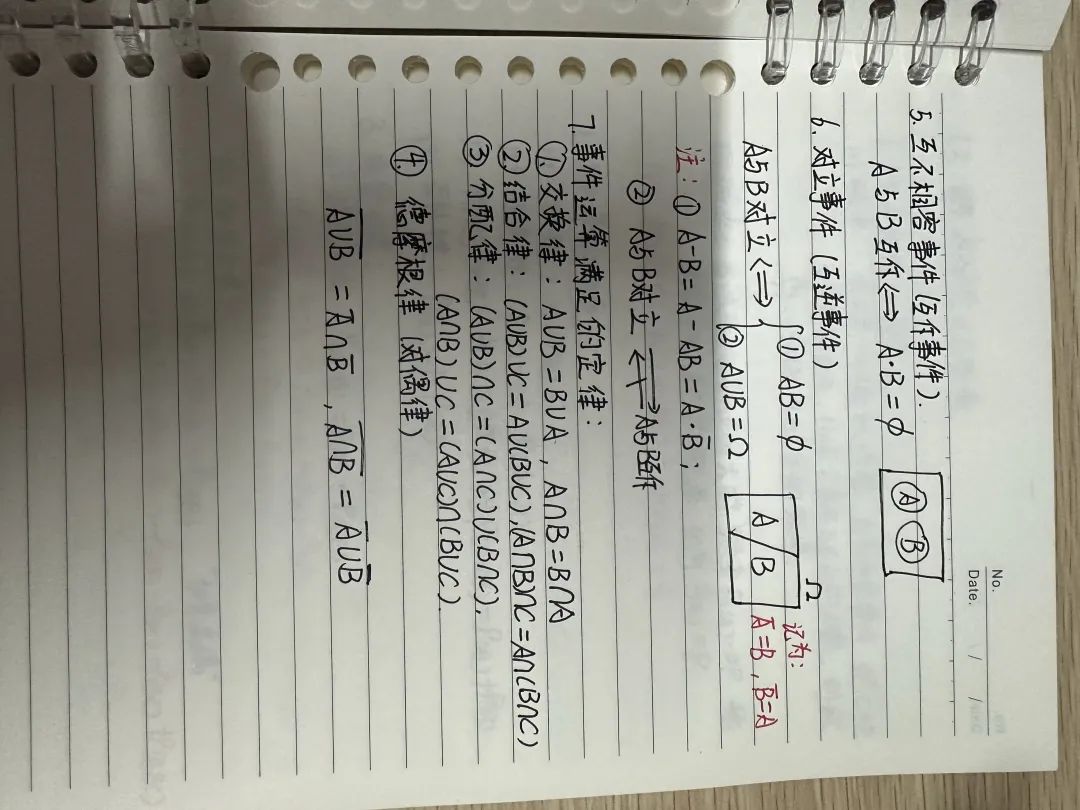 No.
Date. / /
5. 互不相容事件(互斥事件).
A与B互斥⟺ A·B=∅
A B
6. 对立事件(互逆事件)
A与B对立⟺ { ① AB=∅
② A∪B=Ω
Ω
A/B
记为:
A̅=B, B̅=A
注: ① A-B=A-AB=A·B̅;
② A与B对立 ⇄̸ A与B互斥
7. 事件运算满足的定律:
① 交换律: A∪B=B∪A, A∩B=B∩A
② 结合律: (A∪B)∪C=A∪(B∪C), (A∩B)∩C=A∩(B∩C)
③ 分配律: (A∪B)∩C=(A∩C)∪(B∩C),
(A∩B)∪C=(A∪C)∩(B∪C).
④ 德摩根律(对偶律)
A̅∪̅B̅ = A̅∩B̅, A̅∩̅B̅ = A̅∪B̅